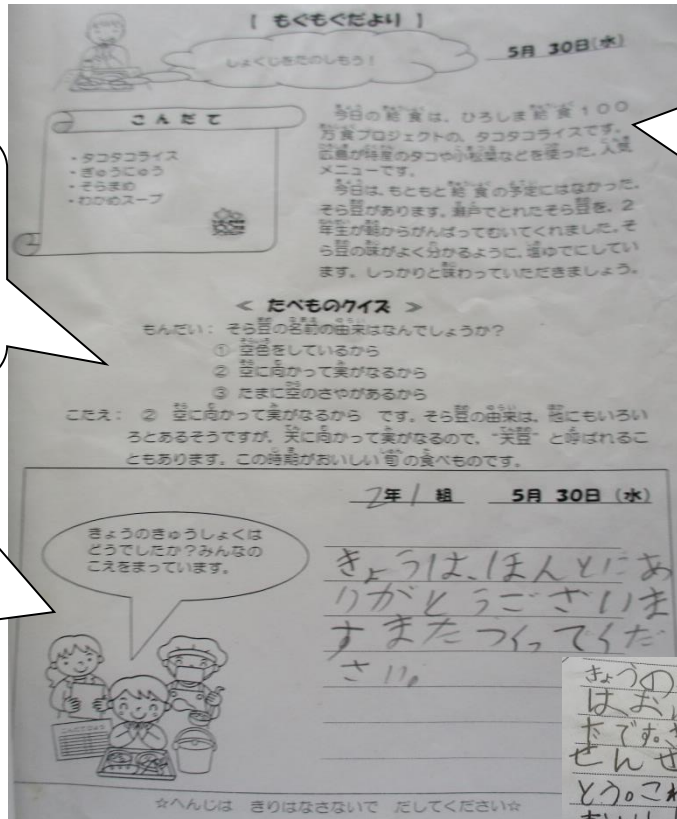 【 もぐもぐだより 】
しょくじをたのしもう！
5月 30日(水)
こんだて
・タコタコライス
・ぎゅうにゅう
・そらまめ
・わかめスープ
今日の給食は、ひろしま給食１００
万食プロジェクトの、タコタコライスです。
広島が特産のタコや小松菜などを使った、人気
メニューです。
今日は、もともと給食の予定にはなかった、
そら豆があります。瀬戸でとれたそら豆を、２
年生が朝からがんばってむいてくれました。そ
ら豆の味がよく分かるように、塩ゆでにしてい
ます。しっかりと味わっていただきましょう。
＜ たべものクイズ ＞
もんだい： そら豆の名前の由来はなんでしょうか？
① 空色をしているから
② 空に向かって実がなるから
③ たまに空のさやがあるから
こたえ： ② 空に向かって実がなるから です。そら豆の由来は、他にもいろい
ろとあるそうですが、天に向かって実がなるので、“天豆” と呼ばれるこ
ともあります。この時期がおいしい旬の食べものです。
2年 1 組 5月 30日 (水)
きょうのきゅうしょくは
どうでしたか？みんなの
こえをまっています。
きょうは、ほんとにあ
りがとうございま
すまたつくってくだ
さい。
☆へんじは きりはなさないで だしてください☆
きょうの
は、お
たです。
せんせ
とう。これ